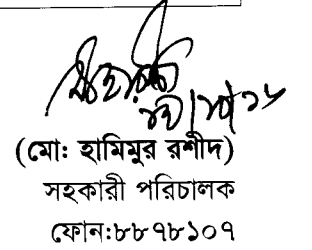 (মোঃ হামিমুর রশীদ)
সহকারী পরিচালক
ফোন:৮৮৭৮১০৭